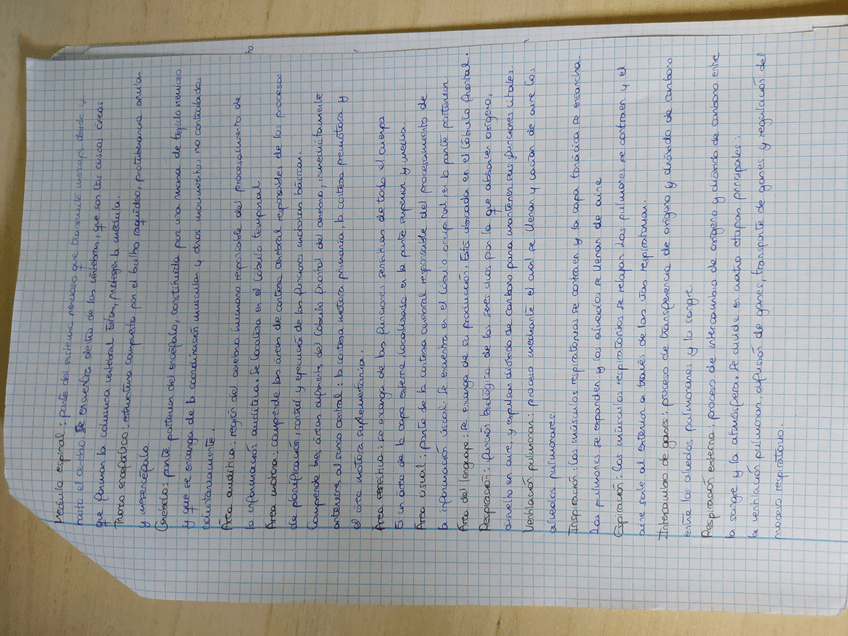 Médula espinal: parte del sistema nervioso que transmite mensajes desde y
hasta el cerebro. Se encuentra dentro de las vértebras, que son los discos óseos
que forman la columna vertebral. Estos, protegen la médula.
Tronco encefálico: estructura compuesta por el bulbo raquídeo, protuberancia anular
y mesencéfalo.
Cerebelo: parte posterior del encéfalo, constituida por una masa de tejido nervioso
y que se encarga de la coordinación muscular y otros movimientos no controlados
voluntariamente.
Área auditiva: región del cerebro humano responsable del procesamiento de
la información auditiva. Se localiza en el lóbulo temporal.
Área motora: comprende las áreas de corteza cerebral responsables de los procesos
de planificación, control y ejecución de las funciones motoras básicas.
Comprende tres áreas del lóbulo frontal del cerebro, inmediatamente
anteriores al surco central: la corteza motora primaria, la corteza premotora y
el área motora suplementaria.
Área sensitiva: se encarga de las funciones sensitivas de todo el cuerpo
Es un área de la capa externa localizada en la parte superior y media.
Área visual: parte de la corteza cerebral responsable del procesamiento de
la información visual. Se encuentra en el lóbulo occipital en la parte posterior
Área del lenguaje: se encarga de su producción. Está ubicada en el lóbulo frontal.
Respiración: función biológica de los seres vivos por la que absorben oxígeno,
disuelto en aire y expulsan dióxido de carbono para mantener sus funciones vitales.
Ventilación pulmonar: proceso mediante el cual se llenan y vacían de aire los
alveolos pulmonares.
Inspiración: los músculos respiratorios se contraen y la capa torácica se ensancha.
Los pulmones se expanden y los alveolos se llenan de aire
Espiración: los músculos respiratorios se relajan. Los pulmones se contraen y el
aire sale al exterior a través de las vías respiratorias.
Intercambio de gases: proceso de transferencia de oxígeno y dióxido de carbono
entre los alveolos pulmonares y la sangre.
Respiración externa: proceso de intercambio de oxígeno y dióxido de carbono entre
la sangre y la atmósfera. Se divide en cuatro etapas principales:
la ventilación pulmonar, difusión de gases, transporte de gases y regulación del
proceso respiratorio.